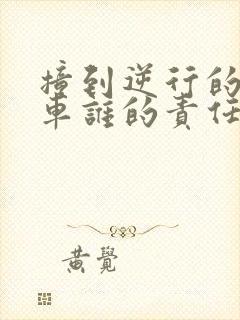 撞到逆行的
車誰的責任
黃覺